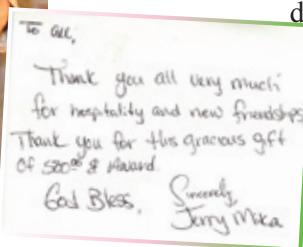 d
To all,
Thank you all very much
for hospitality and new friendships
Thank you for this gracious gift
of & Award
God Bless,
Sincerely,
Jerry